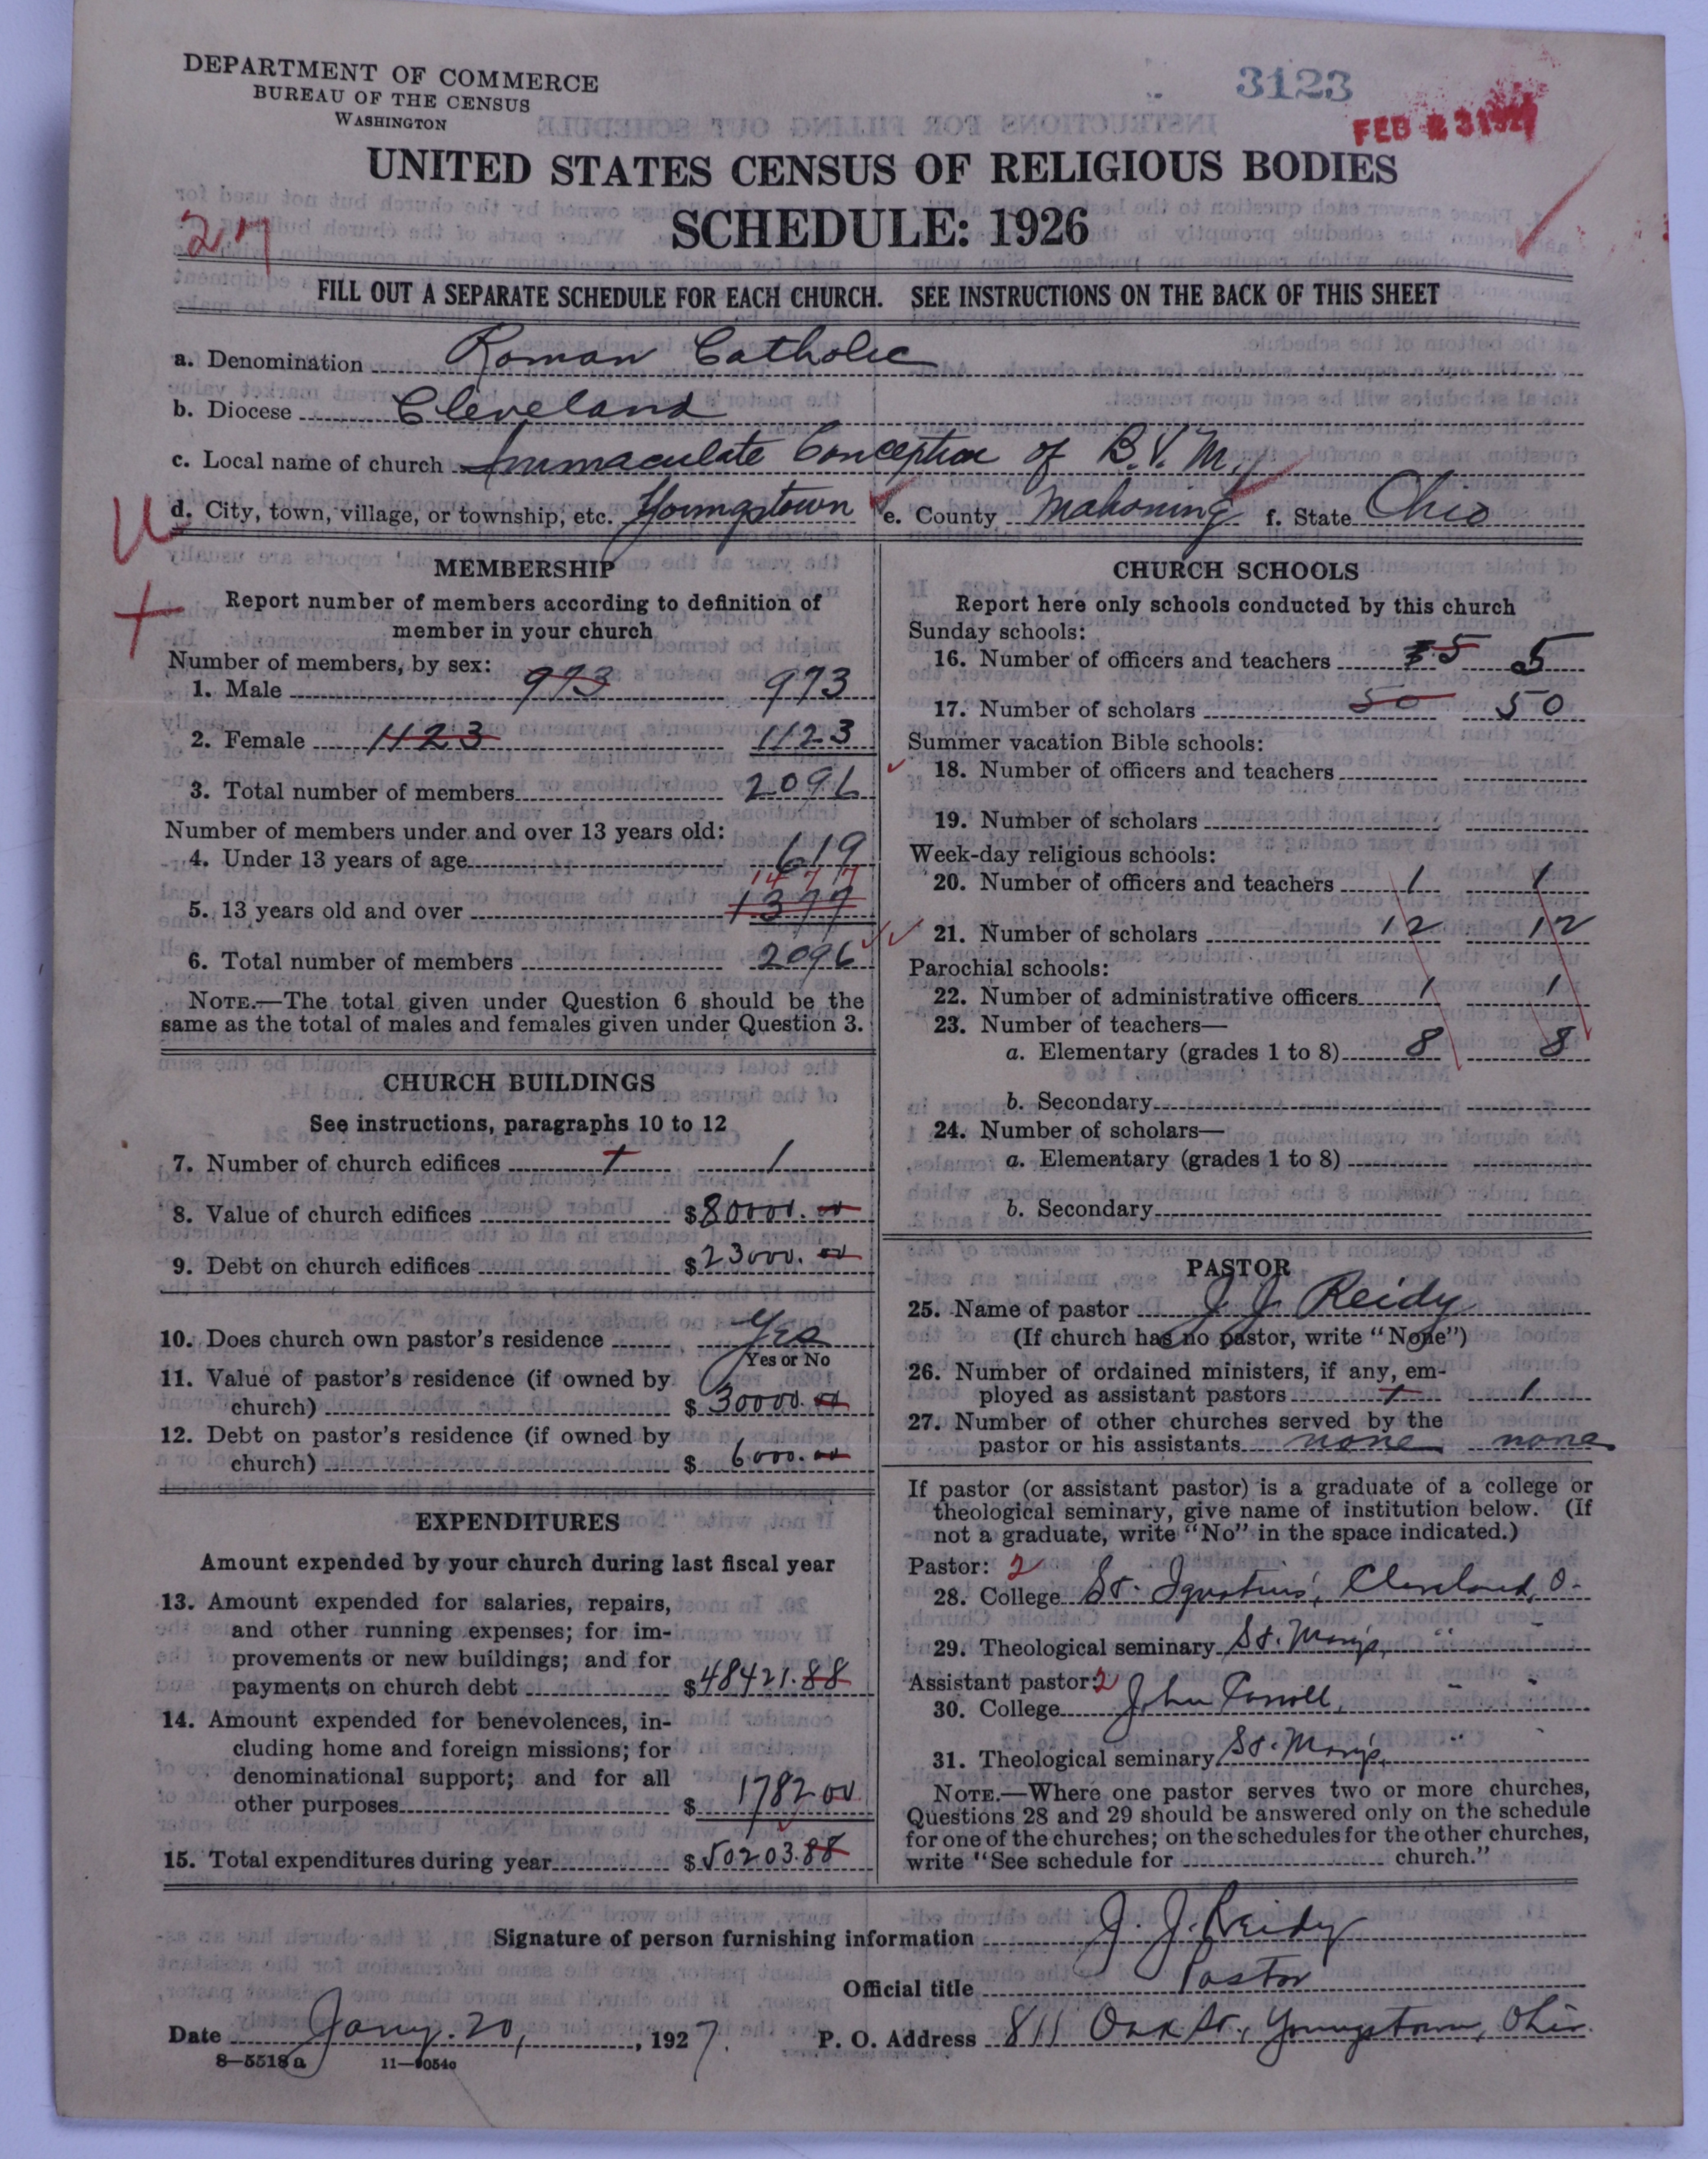 DEPARTMENT OF COMMERCE
BUREAU OF THE CENSUS
WASHINGTON
3123
UNITED STATES CENSUS OF RELIGIOUS BODIES
SCHEDULE: 1926
FILL OUT A SEPARATE SCHEDULE FOR EACH CHURCH. SEE INSTRUCTIONS ON THE BACK OF THIS SHEET
a. Denomination Roman Catholic
b. Diocese Cleveland
c. Local name of church Immaculate Conception of B.V.M.
U
d. City, town, village, or township, etc. Youngstown e. County Mahoning f. State Ohio
MEMBERSHIP
Report number of members according to definition of
member in your church
Number of members, by sex:
1. Male 973 973
2. Female 1123 1123
3. Total number of members 2096
Number of members under and over 13 years old:
4. Under 13 years of age 619
1477
5. 13 years old and over 1377
6. Total number of members 2096
NOTE.—The total given under Question 6 should be the
same as the total of males and females given under Question 3.
CHURCH BUILDINGS
See instructions, paragraphs 10 to 12
7. Number of church edifices 1 1
8. Value of church edifices $ 80000.00
9. Debt on church edifices $ 23000.00
10. Does church own pastor's residence Yes
Yes or No
11. Value of pastor's residence (if owned by
church) $ 30000.00
12. Debt on pastor's residence (if owned by
church) $ 6000.00
EXPENDITURES
Amount expended by your church during last fiscal year
13. Amount expended for salaries, repairs,
and other running expenses; for im-
provements or new buildings; and for
payments on church debt $ 48421.88
14. Amount expended for benevolences, in-
cluding home and foreign missions; for
denominational support; and for all
other purposes $ 1782 00
15. Total expenditures during year $ 50203.88
CHURCH SCHOOLS
Report here only schools conducted by this church
Sunday schools:
16. Number of officers and teachers 5 5
17. Number of scholars 50 50
Summer vacation Bible schools:
18. Number of officers and teachers
19. Number of scholars
Week-day religious schools:
20. Number of officers and teachers 1 1
21. Number of scholars 12 12
Parochial schools:
22. Number of administrative officers 1 1
23. Number of teachers—
a. Elementary (grades 1 to 8) 8 8
b. Secondary
24. Number of scholars—
a. Elementary (grades 1 to 8)
b. Secondary
PASTOR
25. Name of pastor J J Reidy
(If church has no pastor, write "None")
26. Number of ordained ministers, if any, em-
ployed as assistant pastors 1 1
27. Number of other churches served by the
pastor or his assistants none none
If pastor (or assistant pastor) is a graduate of a college or
theological seminary, give name of institution below. (If
not a graduate, write "No" in the space indicated.)
Pastor: 2
28. College St. Ignatius', Cleveland, O.
29. Theological seminary St. Mary's, " "
Assistant pastor: 2
30. College John Carroll, " "
31. Theological seminary St. Mary's, "
NOTE.—Where one pastor serves two or more churches,
Questions 28 and 29 should be answered only on the schedule
for one of the churches; on the schedules for the other churches,
write "See schedule for church."
Signature of person furnishing information J. J. Reidy
Official title Pastor
Date Jany. 20, , 1927. P. O. Address 811 Oak St., Youngstown, Ohio.
8—5518a 11—9054c